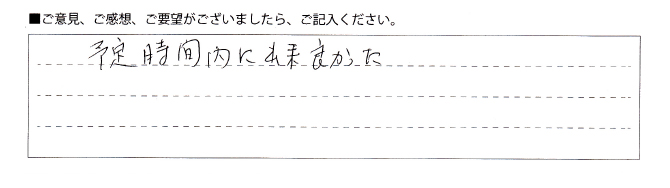 ■ご意見、ご感想、ご要望がございましたら、ご記入ください。
予定時間内に出来良かった